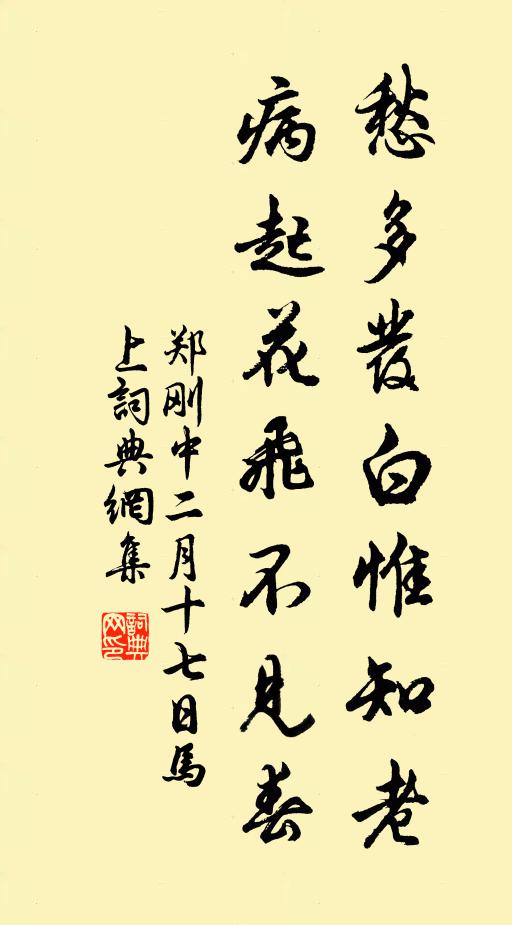 愁多發白惟知老
病起花飛不見春
郑刚中二月十七日馬
上詞典網集
詞典
网印